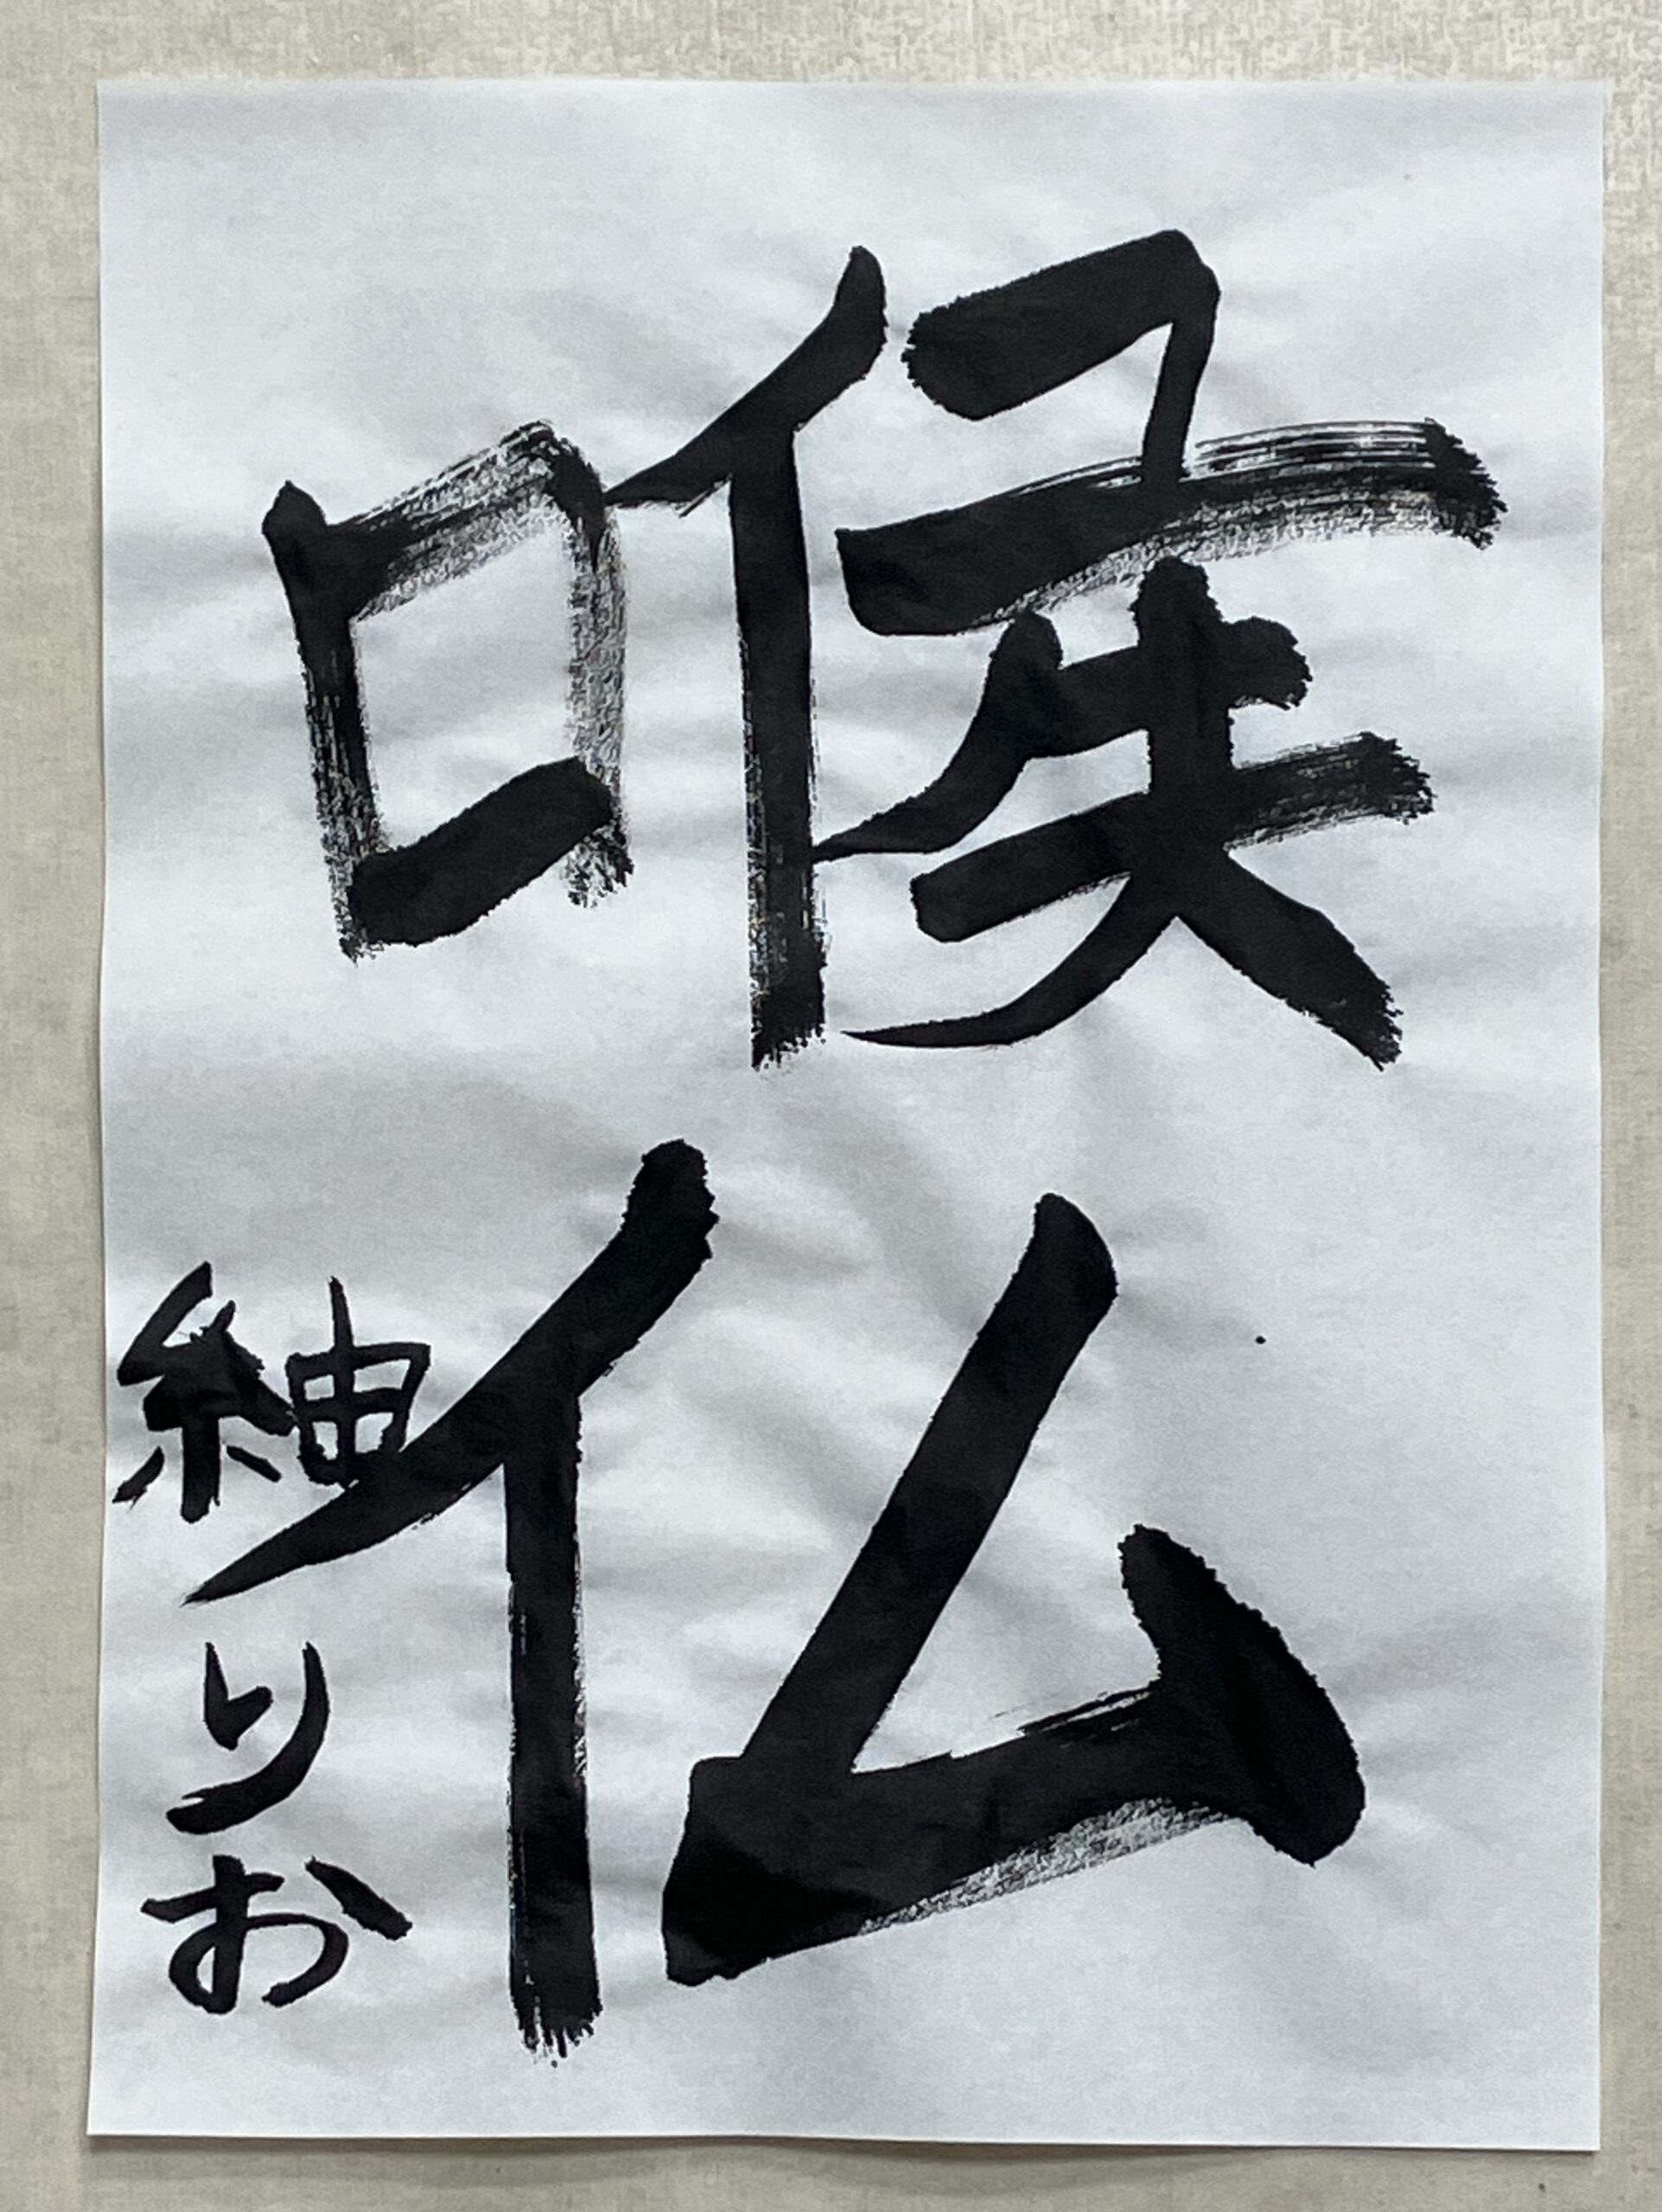 喉仏
紬りお